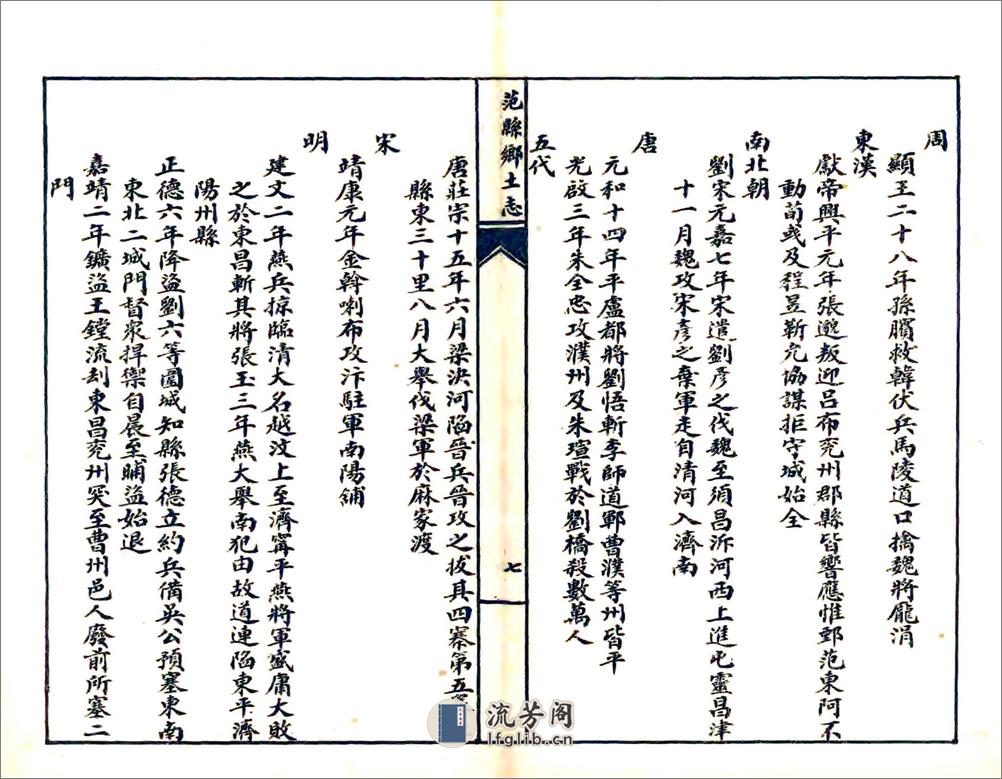 周
顯王二十八年孫臏救韓伏兵馬陵道口擒魏將龐涓
東漢
獻帝興平元年張邈叛迎呂布兖州郡縣皆響應惟鄄范東阿不
動荀彧及程昱靳允協謀拒守城始全
南北朝
劉宋元嘉七年宋遣劉彥之伐魏至須昌泝河西上進屯靈昌津
十一月魏攻宋彥之棄軍走自清河入濟南
唐
元和十四年平盧都將劉悟斬李師道鄆曹濮等州皆平
光啟三年朱全忠攻濮州及朱瑄戰於劉橋殺數萬人
五代
范縣鄉土志
七
唐莊宗十五年六月梁決河陷晉兵晉攻之拔具四寨第五
縣東三十里八月大舉伐梁軍於麻家渡
宋
靖康元年金斡喇布攻汴駐軍南陽舖
明
建文二年燕兵掠臨清大名越汶上至濟寧平燕將軍盛庸大敗
之於東昌斬其將張玉三年燕大舉南犯由故道連陷東平濟
陽州縣
正德六年降盜劉六等圍城知縣張德立約兵備吳公預塞東南
東北二城門督衆捍禦自晨至晡盜始退
嘉靖二年鑛盜王鏜流刦東昌兖州突至曹州邑人廢前所塞二
門
流芳阁
lfglib.cn